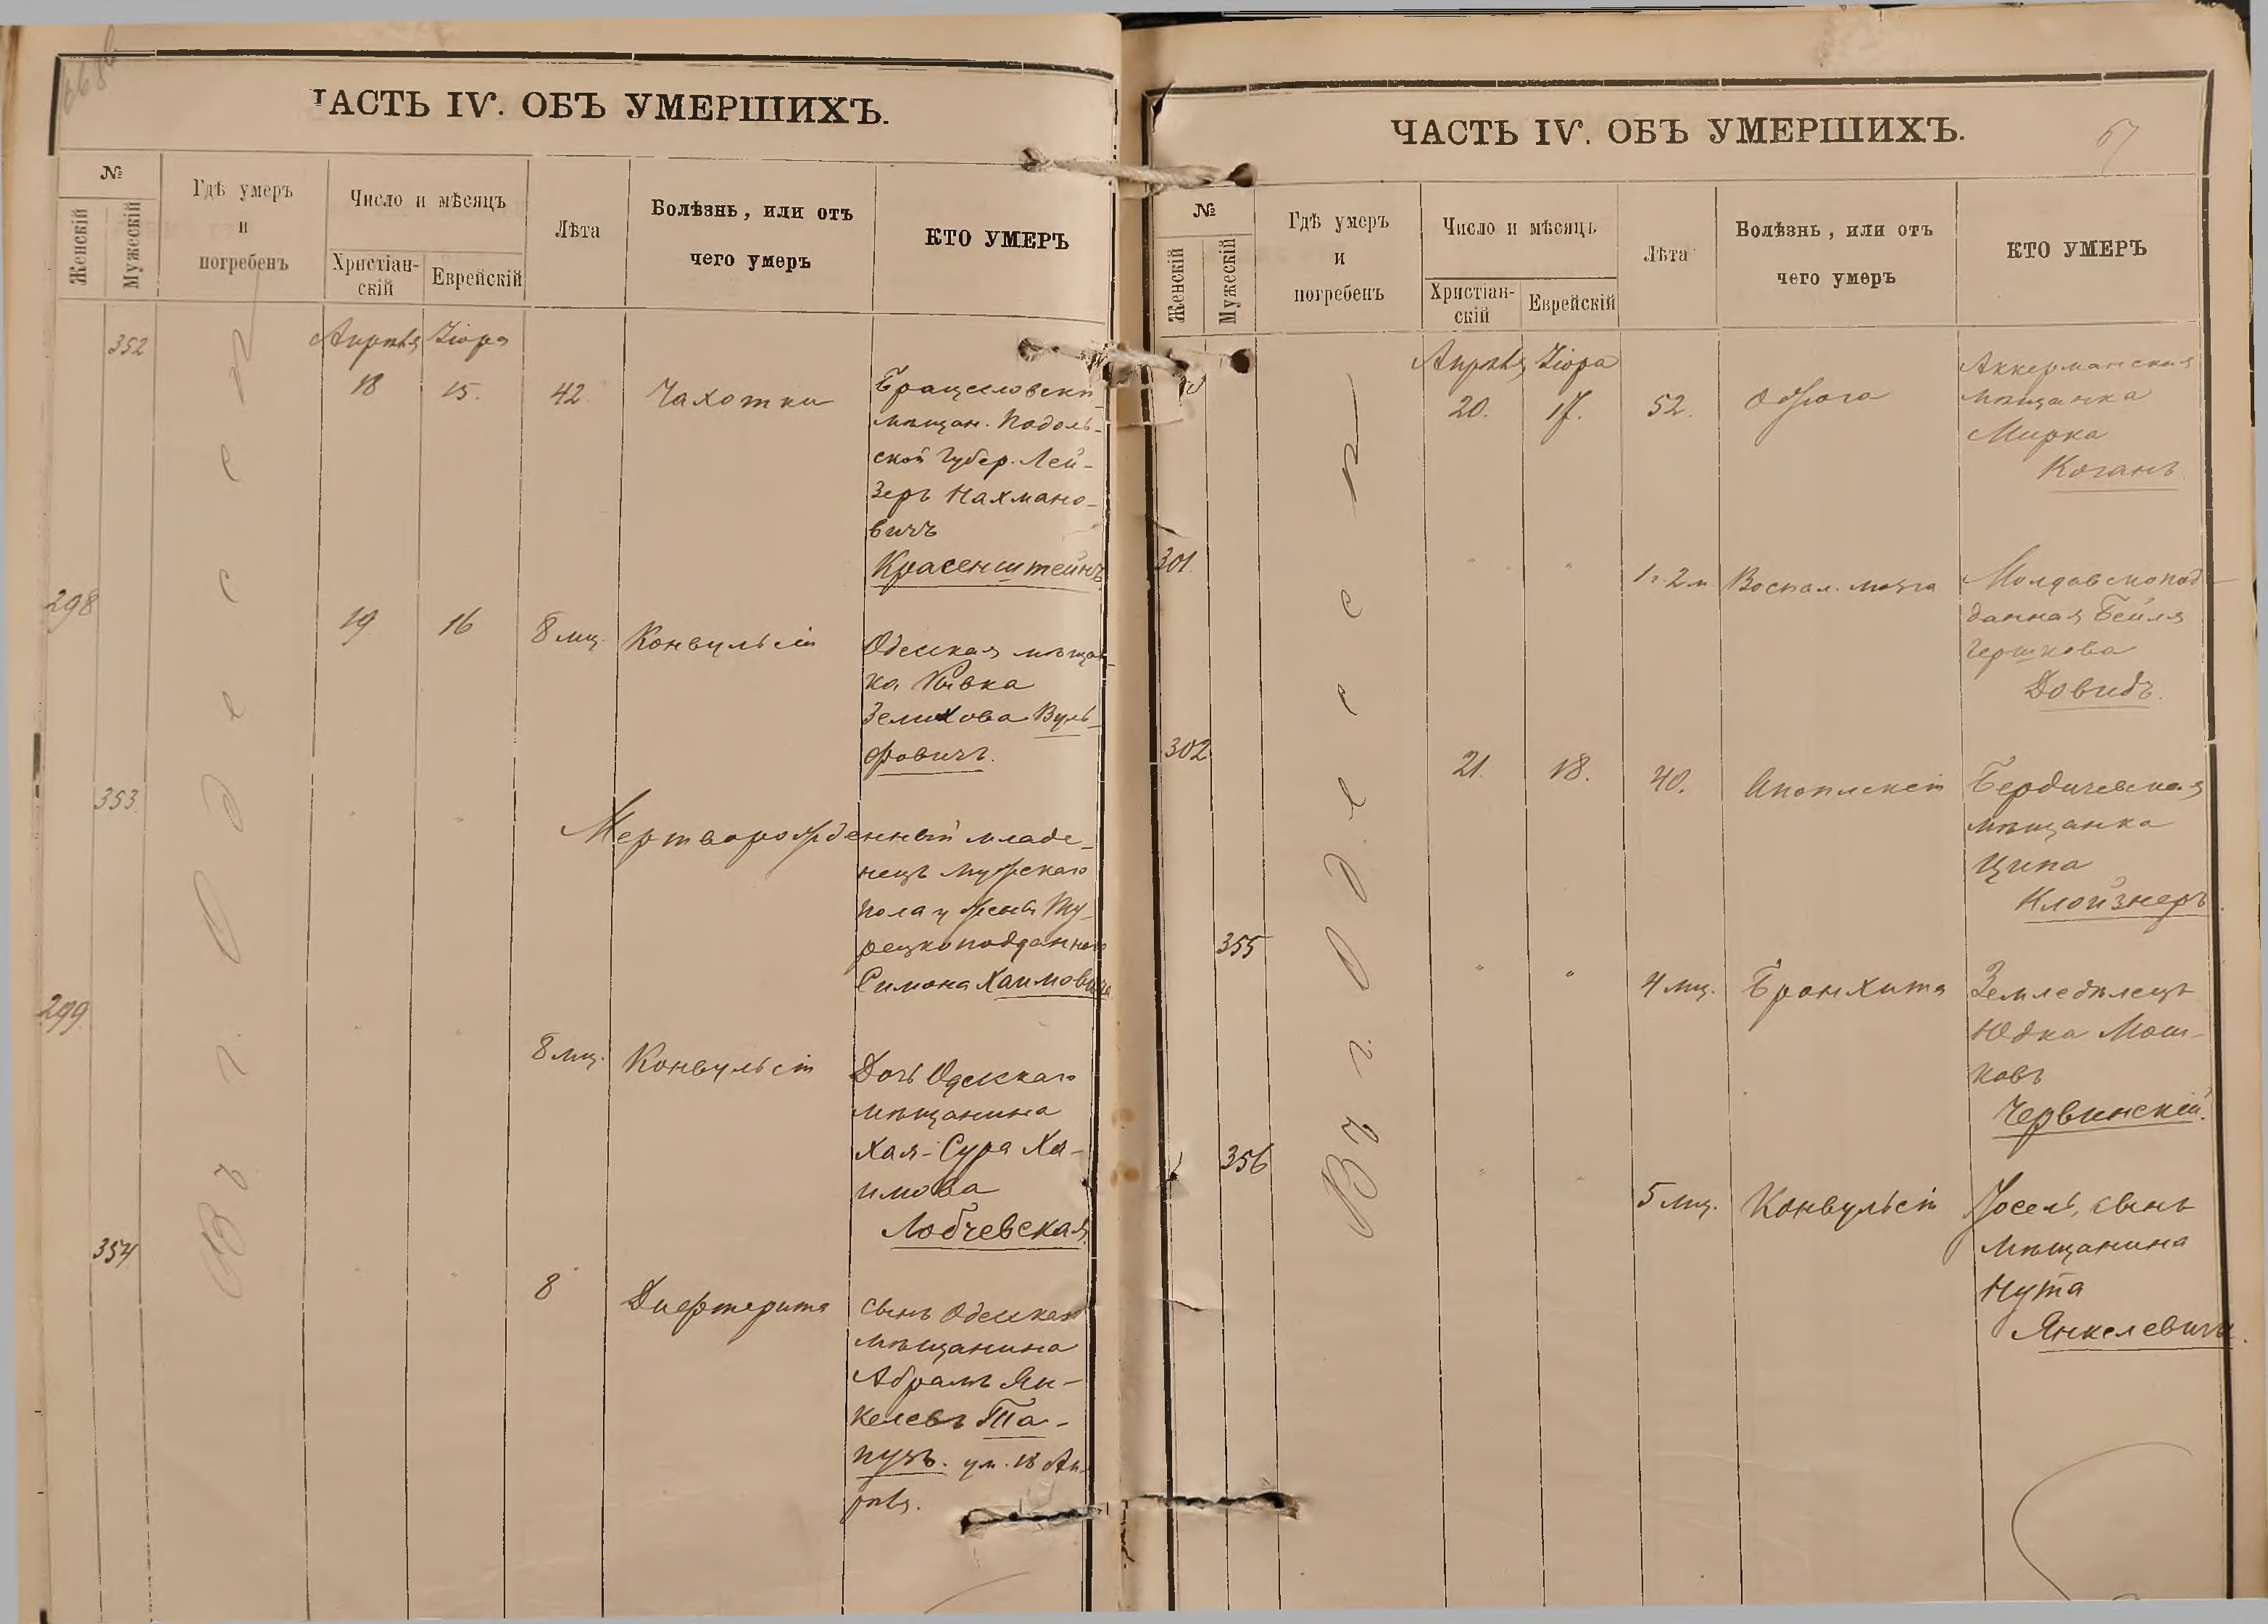 ЧАСТЬ IV. ОБЪ УМЕРШИХЪ.
№
Женскій
Мужескій
Гдѣ умеръ
и
погребенъ
Число и мѣсяцъ
Христіан-
скій
Еврейскій
Лѣта
Болѣзнь, или отъ
чего умеръ
КТО УМЕРЪ
Въ г. Одессѣ
352
Апрѣля Іюра
18 15. 42 Чахотки
Брацловскій
мѣщан. Подоль-
ской Губер. Лей-
зеръ Нахмано-
вичъ
Красенштейнъ
298
19 16 8 мц. Конвульсіи
Одесская мѣщан-
ка Ривка
Зелихова Вуль-
фовичъ.
353
" "
Мертворожденный младе-
нецъ мужскаго
пола у жены Ту-
рецкоподданнаго
Симона Хаимовича
299
" " 8 мц. Конвульсіи
Дочь Одесскаго
мѣщанина
Хая-Сура Ха-
имова
Лобчевская.
354
" " 8 Дифтерита
сынъ Одесскаго
мѣщанина
Абрамъ Ян-
келевъ Та-
пузъ. ум. 18 Ап-
рѣля.
ЧАСТЬ IV. ОБЪ УМЕРШИХЪ.
67
№
Женскій
Мужескій
Гдѣ умеръ
и
погребенъ
Число и мѣсяцъ
Христіан-
скій
Еврейскій
Лѣта
Болѣзнь, или отъ
чего умеръ
КТО УМЕРЪ
Въ г. Одессѣ
Апрѣля Іюра
20. 17. 52. Ожога
Аккерманская
мѣщанка
Мирка
Коганъ
301
" " 1 г. 2 м Воспал. мозга
Молдавскопод-
данная Бейля
Гершкова
Довидъ.
302
21. 18. 40. Апоплексіи
Бердичевская
мѣщанка
Ципа
Клойзнеръ.
355
" " 4 мц. Бронхита
Земледѣлецъ
Юдка Мош-
ковъ
Червинскій.
356
" " 5 мц. Конвульсіи
Іосель, сынъ
мѣщанина
Нута
Янкелевича.